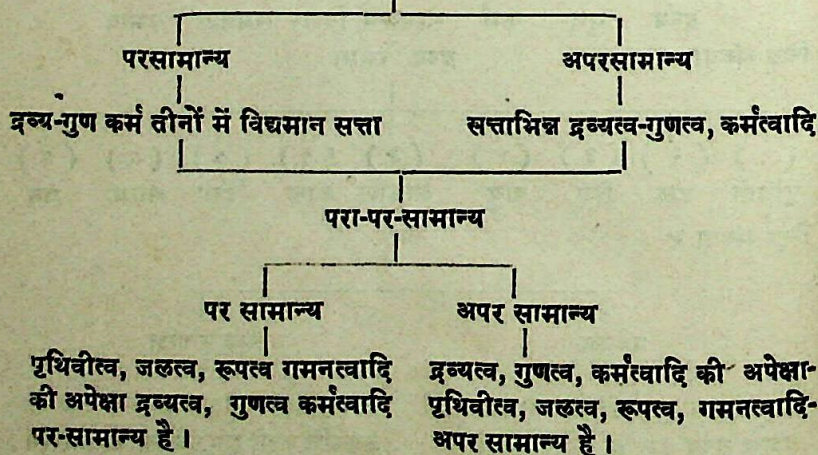 परसामान्य
अपरसामान्य
द्रव्य-गुण कर्म तीनों में विद्यमान सत्ता
सत्ताभिन्न द्रव्यत्व-गुणत्व, कर्मत्वादि
परा-पर-सामान्य
पर सामान्य
अपर सामान्य
पृथिवीत्व, जलत्व, रूपत्व गमनत्वादि
की अपेक्षा द्रव्यत्व, गुणत्व कर्मत्वादि
पर-सामान्य है।
द्रव्यत्व, गुणत्व, कर्मत्वादि की अपेक्षा-
पृथिवीत्व, जलत्व, रूपत्व, गमनत्वादि-
अपर सामान्य है।